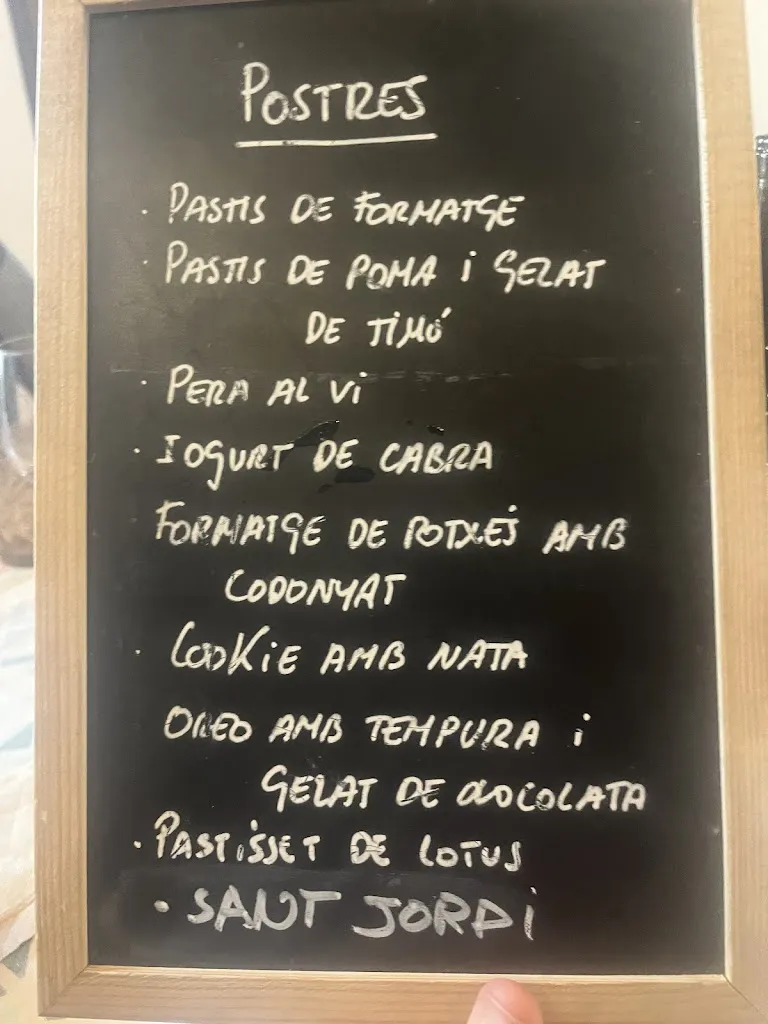 POSTRES
· PASTIS DE FORMATGE
· PASTIS DE POMA i GELAT
DE TIMÓ
· PERA AL Vi
· IOGURT DE CABRA
FORMATGE DE POTXES AMB
CODONYAT
· COOKiE AMB NATA
OREO AMB TEMPURA i
GELAT DE XOCOLATA
· PASTiSSET DE LOTUS
· SANT JORDi